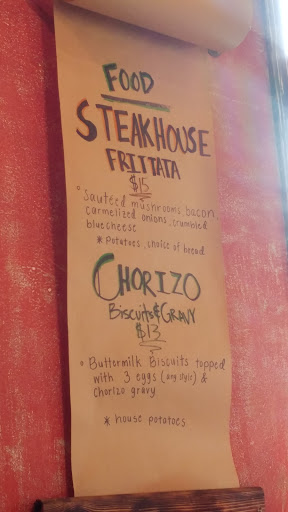 FOOD
STEAKHOUSE
FRITTATA
$15
Sautéed mushrooms, bacon
carmelized onions, crumbled
bluecheese
* Potatoes, choice of bread
CHORIZO
Biscuits & GRAVY
$13
Buttermilk Biscuits topped
with 3 eggs (any style) &
Chorizo gravy
* house potatoes